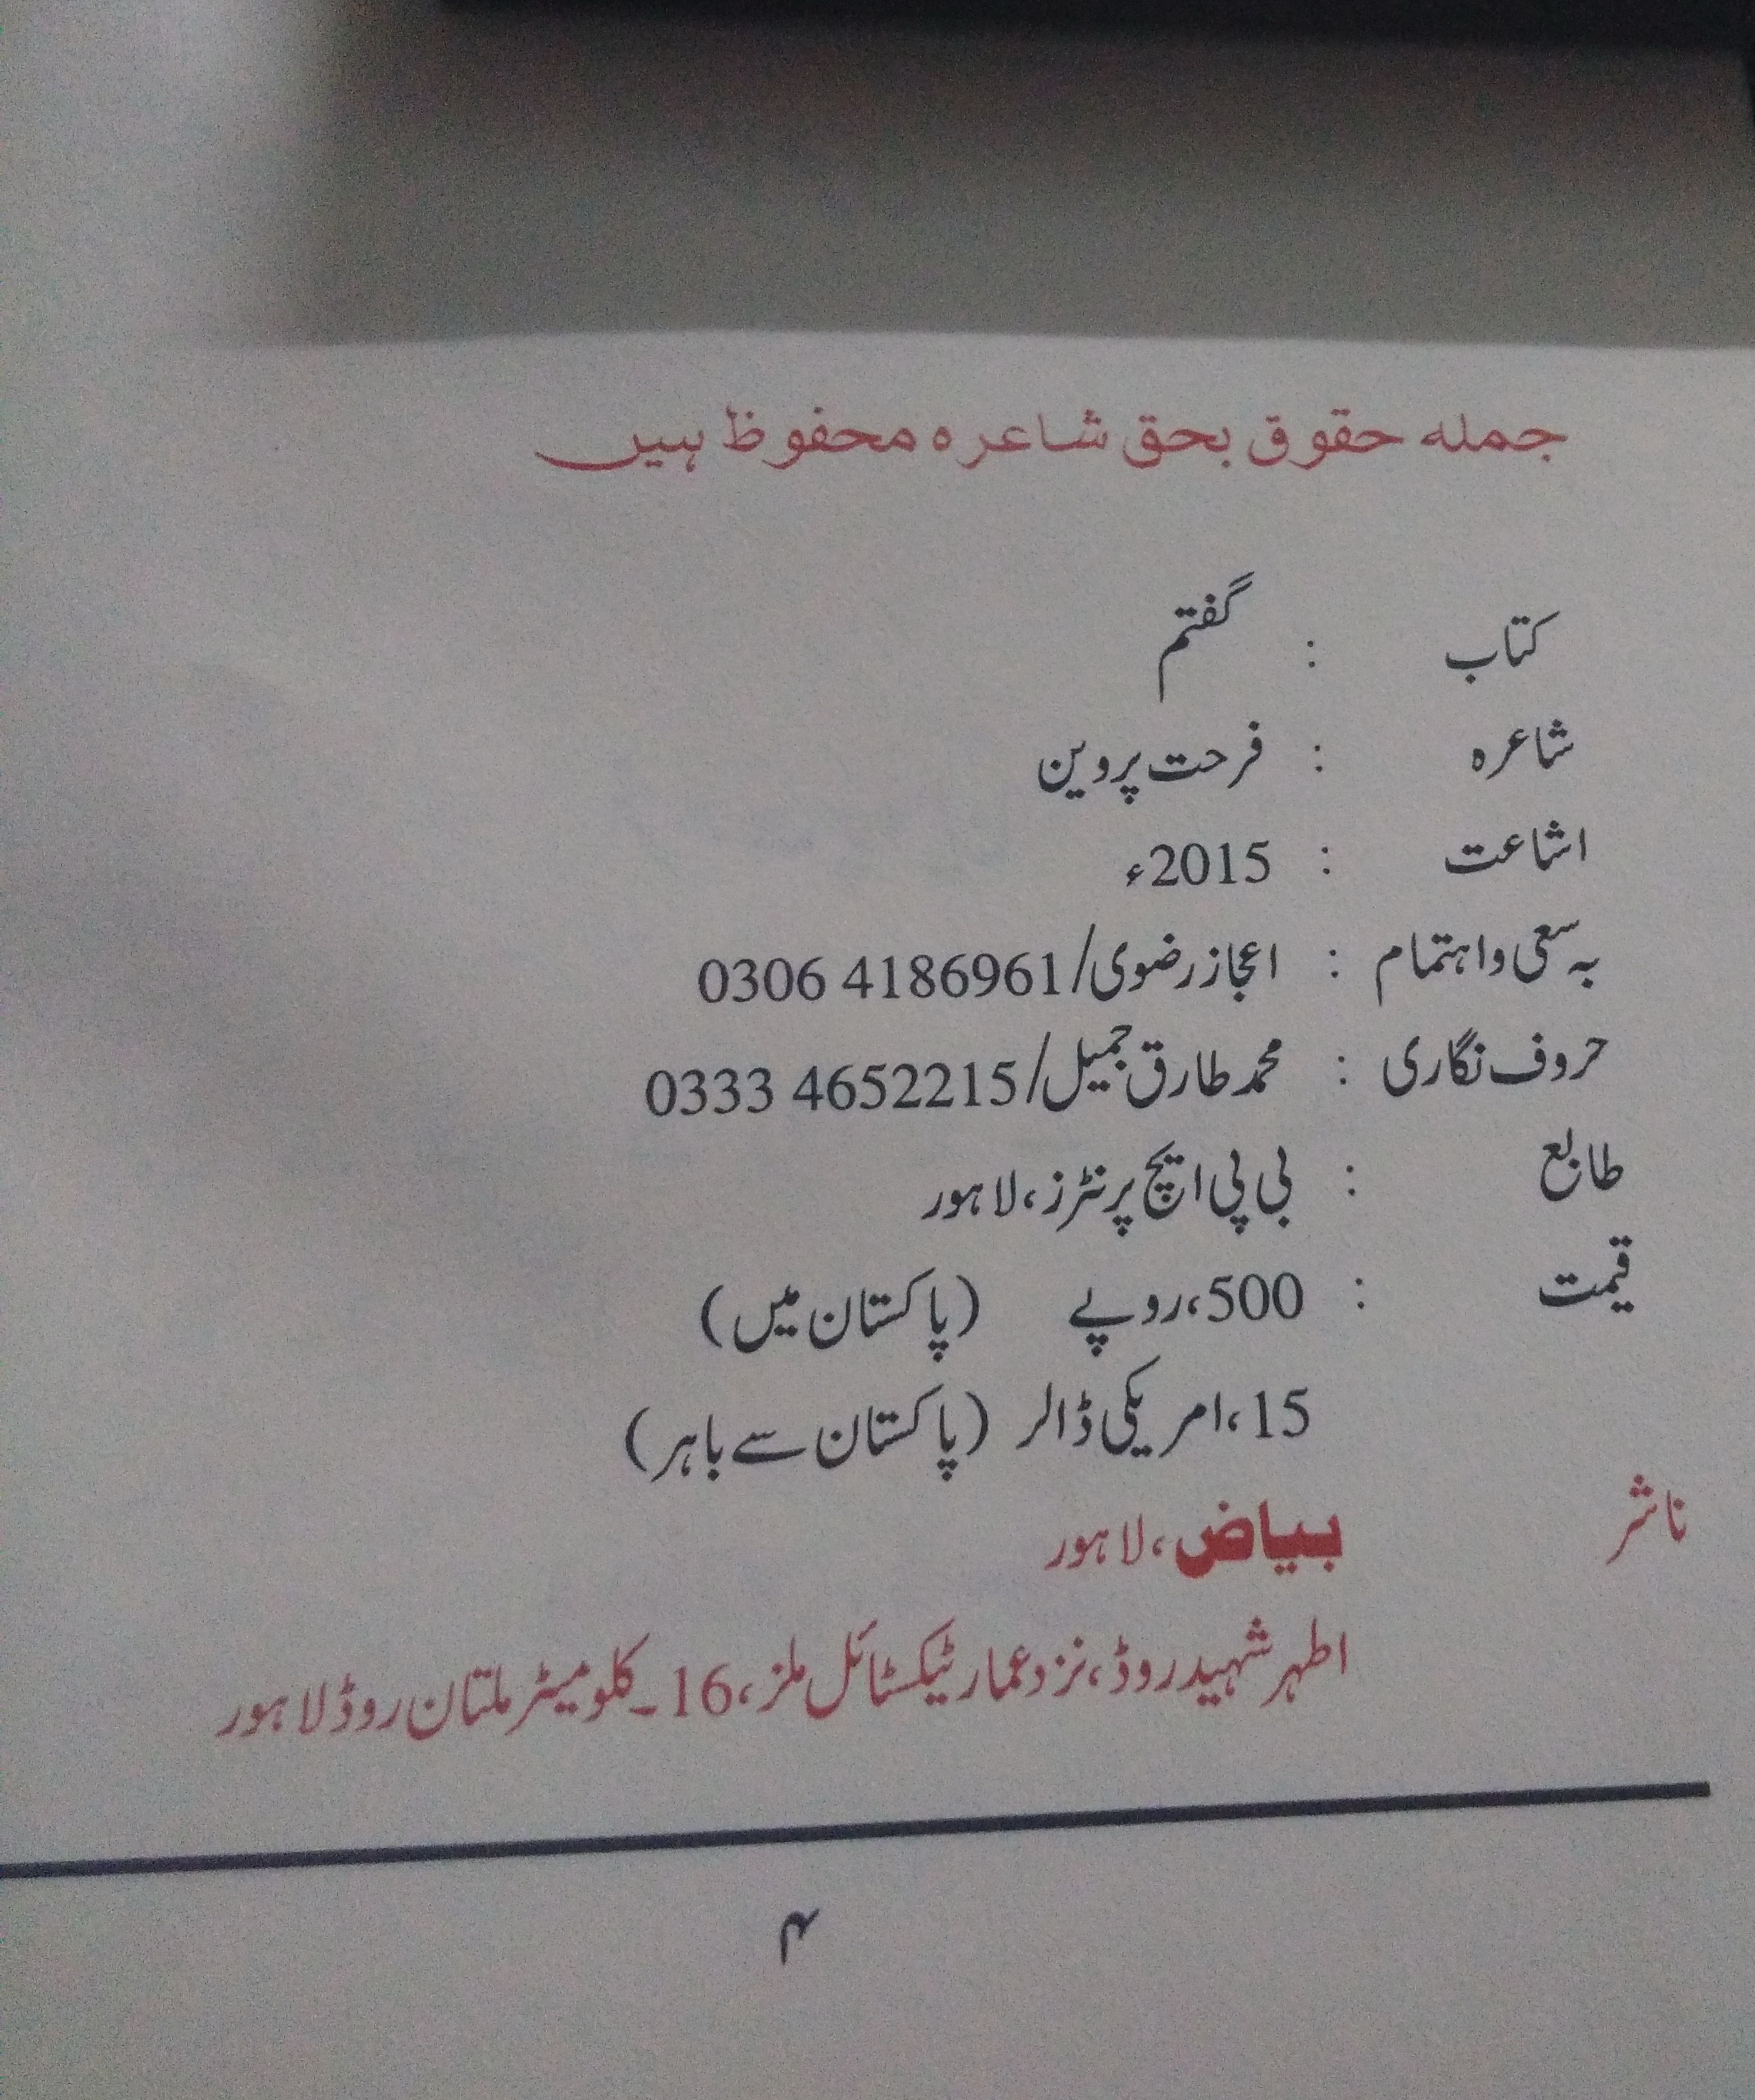 جملہ حقوق بحق شاعرہ محفوظ ہیں
کتاب : گفتم
شاعرہ : فرحت پروین
اشاعت : 2015ء
بہ سعی و اہتمام : اعجاز رضوی/0306 4186961
حروف نگاری : محمد طارق جمیل/0333 4652215
طابع : بی پی ایچ پرنٹرز، لاہور
قیمت : 500، روپے (پاکستان میں)
15، امریکی ڈالر (پاکستان سے باہر)
ناشر بیاض، لاہور
اطہر شہید روڈ، نزد عمار ٹیکسٹائل ملز، 16۔کلومیٹر ملتان روڈ لاہور
۴